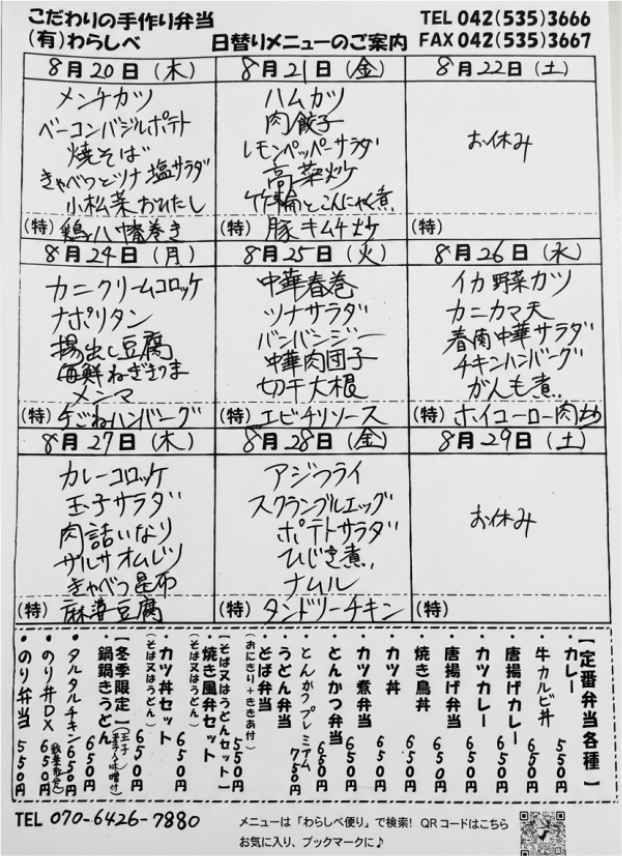 こだわりの手作り弁当
(有)わらしべ
日替りメニューのご案内
TEL 042(535)3666
FAX 042(535)3667
8月20日(木)
メンチカツ
ベーコンバジルポテト
焼そば
きゃべつとツナ塩サラダ
小松菜おひたし
(特) 鶏八幡巻き
8月21日(金)
ハムカツ
肉餃子
レモンペッパーサラダ
高菜炒
竹輪とこんにゃく煮
(特) 豚キムチ炒
8月22日(土)
お休み
(特)
8月24日(月)
カニクリームコロッケ
ナポリタン
揚出し豆腐
海鮮ねぎまつま
メンマ
(特) 手ごねハンバーグ
8月25日(火)
中華春巻
ツナサラダ
バンバンジー
中華肉団子
切干大根
(特) エビチリソース
8月26日(水)
イカ野菜カツ
カニカマ天
春雨中華サラダ
チキンハンバーグ
がんも煮
(特) ホイコーロー肉炒
8月27日(木)
カレーコロッケ
玉子サラダ
肉詰いなり
サルサオムレツ
きゃべつ昆布
(特) 麻婆豆腐
8月28日(金)
アジフライ
スクランブルエッグ
ポテトサラダ
ひじき煮
ナムル
(特) タンドリーチキン
8月29日(土)
お休み
(特)
【定番弁当各種】
・カレー 550円
・牛カルビ丼 650円
・唐揚げカレー 650円
・カツカレー 650円
・唐揚げ弁当 650円
・焼き鳥丼 650円
・カツ丼 650円
・カツ煮弁当 650円
・とんかつ弁当 650円
・とんかつプレミアム 750円
・うどん弁当
・そば弁当
(おにぎり+かきあ付) 550円
【そば又はうどんセット】
・焼き風弁セット
(そば又はうどん) 650円
・カツ丼セット
(そば又はうどん) 650円
【冬季限定】
・鍋焼きうどん 650円
・タルタルチキン 650円
・のり弁DX 650円
・のり弁当 550円
TEL 070-6426-7880
メニューは「わらしべ便り」で検索! QRコードはこちら
お気に入り、ブックマークに♪